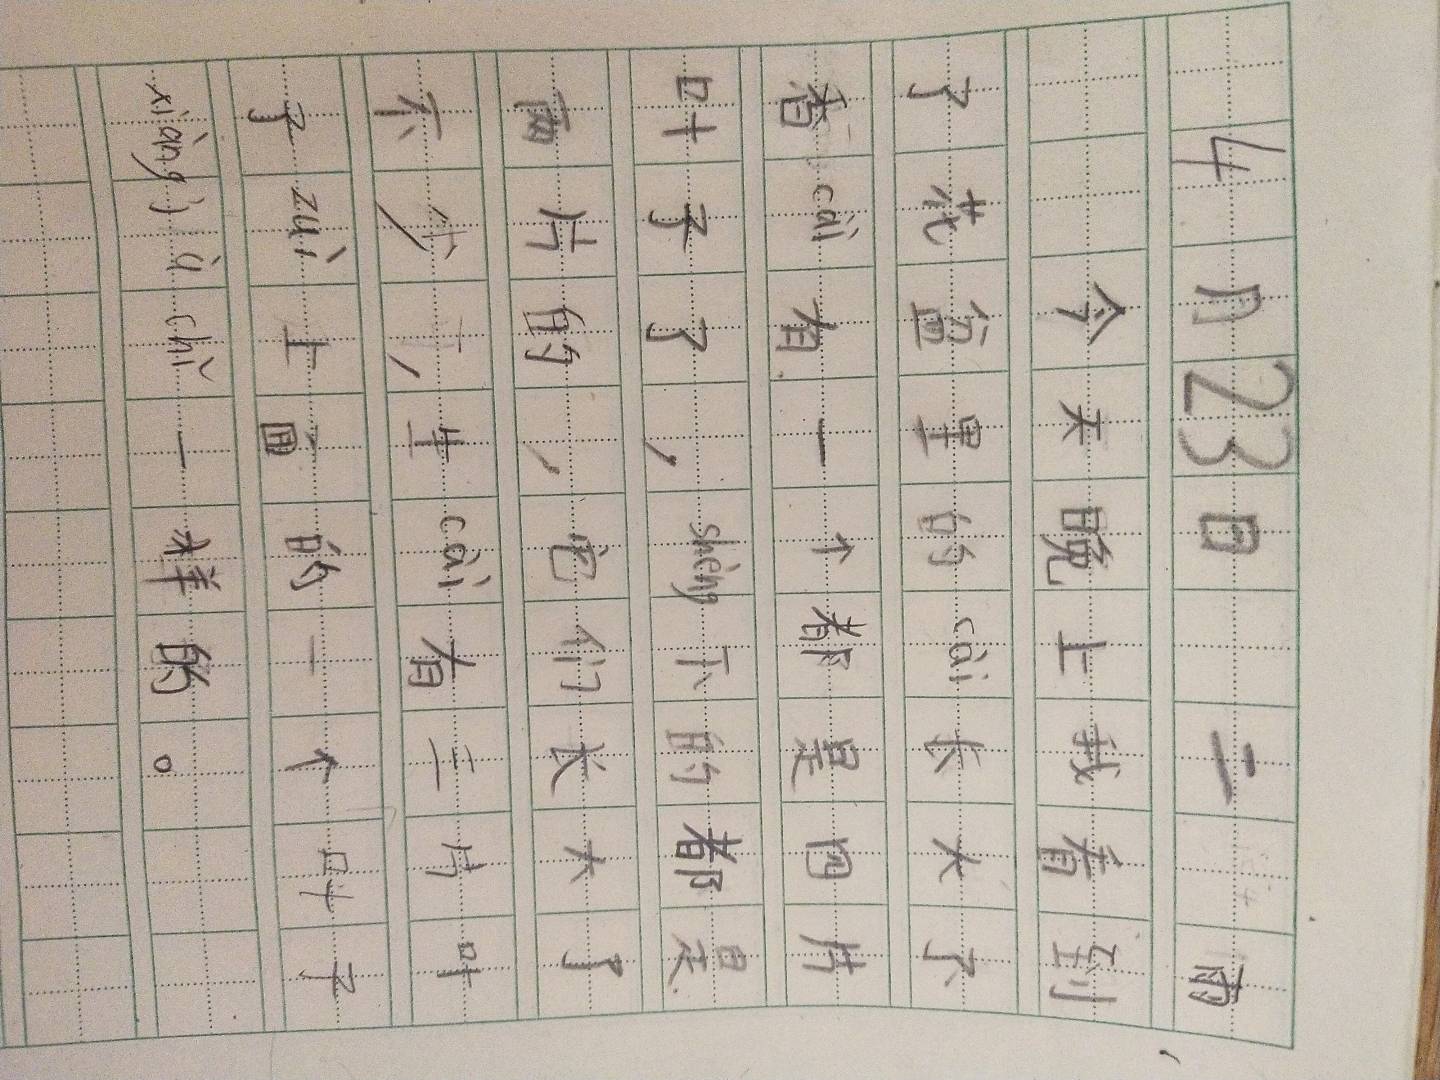 4月23日 二 雨
今天晚上我看到
了花盆里的cài长大了
香cài有一个都是四片
叶子了，shèng下的都是
两片的，它们长大了
不少，生cài有三片叶
了zuì上面的一个叶子
xiàng jù chǐ一样的。